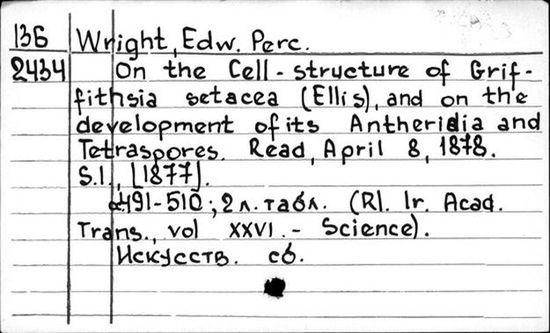 136 Wright, Edw. Perc.
2434 On the Cell-structure of Grif-
fithsia setacea (Ellis), and on the
development of its Antheridia and
Tetraspores. Read, April 8, 1878.
S.l., [1877].
491-510; 2 л. табл. (Rl. Ir. Acad.
Trans., vol XXVI. - Science).
Искусств. сб.